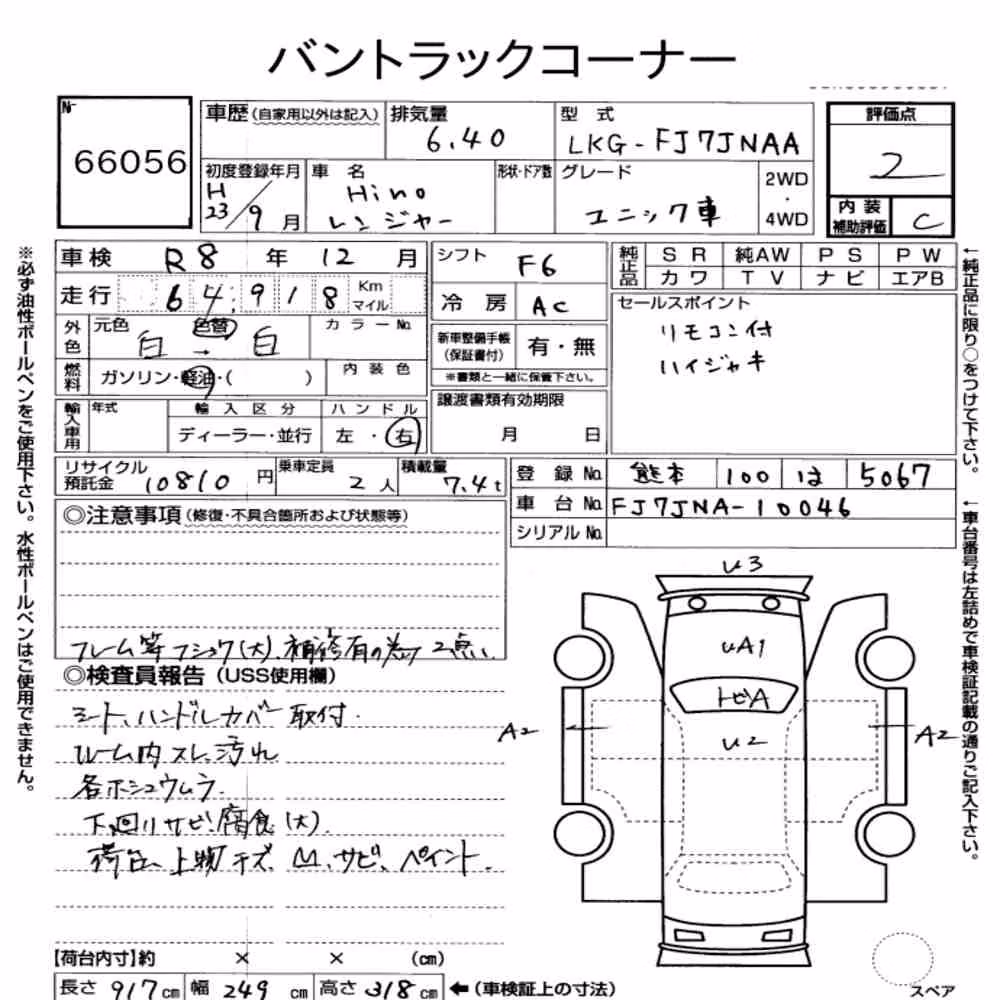 バントラックコーナー
No
66056
車歴(自家用以外は記入)
排気量
6.40
型 式
LKG-FJ7JNAA
評価点
2
初度登録年月
H
23/9月
車 名
Hino
レンジャー
形状・ドア数
グレード
ユニック車
2WD
・
4WD
内 装
補助評価
C
車検 R8年 12月
走行 64,918 Km マイル
シフト F6
冷 房 AC
純正品
SR 純AW PS PW
カワ TV ナビ エアB
セールスポイント
リモコン付
ハイジャキ
外色
元色 白 → 色替 白
カラーNo.
新車整備手帳
(保証書付)
有・無
※書類と一緒に保管下さい。
燃料
ガソリン・軽油・( )
内 装 色
譲渡書類有効期限
月 日
輸入車用
年式
輸 入 区 分
ディーラー・並行
ハ ン ド ル
左 ・ 右
リサイクル
預託金 10810円
乗車定員 2人
積載量 7.4t
登 録 No. 熊本 100 は 5067
車 台 No. FJ7JNA-10046
シリアル No.
◎注意事項(修復・不具合箇所および状態等)
フレーム等フショク(大)、補修有の為 2点、
◎検査員報告(USS使用欄)
シート、ハンドルカバー取付.
ルーム内スレ、汚れ
各ホシュウムラ.
下廻リサビ、腐食(大).
荷台、上物キズ、凹、サビ、ペイント.
U3
UA1
トビA
U2
A2
A2
【荷台内寸】約 × × (cm)
長さ 917cm 幅 249cm 高さ 318cm ←(車検証上の寸法)
スペア
※必ず油性ボールペンをご使用下さい。水性ボールペンはご使用できません。
←純正品に限り○をつけて下さい。
←車台番号は左詰めで車検証記載の通りご記入下さい。